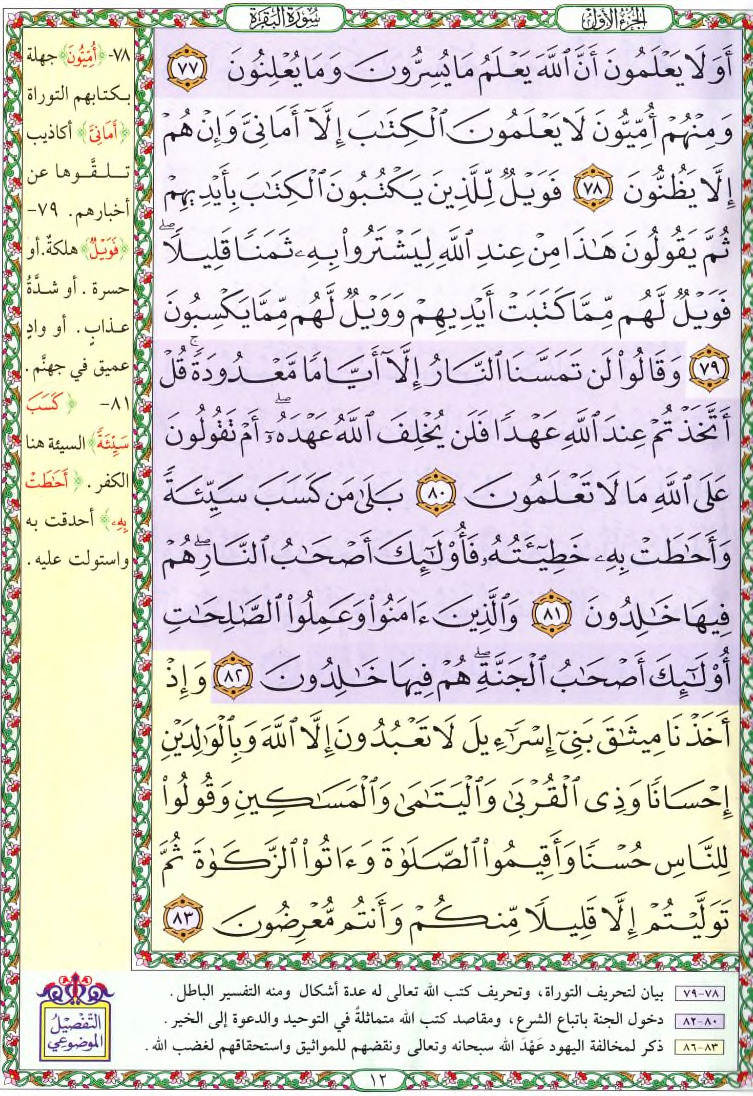 الجزء الأول
سورة البقرة
أَوَلَا يَعْلَمُونَ أَنَّ ٱللَّهَ يَعْلَمُ مَا يُسِرُّونَ وَمَا يُعْلِنُونَ ٧٧
وَمِنْهُمْ أُمِّيُّونَ لَا يَعْلَمُونَ ٱلْكِتَٰبَ إِلَّآ أَمَانِىَّ وَإِنْ هُمْ
إِلَّا يَظُنُّونَ ٧٨ فَوَيْلٌ لِّلَّذِينَ يَكْتُبُونَ ٱلْكِتَٰبَ بِأَيْدِيهِمْ
ثُمَّ يَقُولُونَ هَٰذَا مِنْ عِندِ ٱللَّهِ لِيَشْتَرُوا۟ بِهِۦ ثَمَنًا قَلِيلًا ۖ
فَوَيْلٌ لَّهُم مِّمَّا كَتَبَتْ أَيْدِيهِمْ وَوَيْلٌ لَّهُم مِّمَّا يَكْسِبُونَ
٧٩ وَقَالُوا۟ لَن تَمَسَّنَا ٱلنَّارُ إِلَّآ أَيَّامًا مَّعْدُودَةً ۚ قُلْ
أَتَّخَذْتُمْ عِندَ ٱللَّهِ عَهْدًا فَلَن يُخْلِفَ ٱللَّهُ عَهْدَهُۥٓ ۖ أَمْ تَقُولُونَ
عَلَى ٱللَّهِ مَا لَا تَعْلَمُونَ ٨٠ بَلَىٰ مَن كَسَبَ سَيِّئَةً
وَأَحَٰطَتْ بِهِۦ خَطِيٓـَٔتُهُۥ فَأُو۟لَٰٓئِكَ أَصْحَٰبُ ٱلنَّارِ ۖ هُمْ
فِيهَا خَٰلِدُونَ ٨١ وَٱلَّذِينَ ءَامَنُوا۟ وَعَمِلُوا۟ ٱلصَّٰلِحَٰتِ
أُو۟لَٰٓئِكَ أَصْحَٰبُ ٱلْجَنَّةِ ۖ هُمْ فِيهَا خَٰلِدُونَ ٨٢ وَإِذْ
أَخَذْنَا مِيثَٰقَ بَنِىٓ إِسْرَٰٓءِيلَ لَا تَعْبُدُونَ إِلَّا ٱللَّهَ وَبِٱلْوَٰلِدَيْنِ
إِحْسَانًا وَذِى ٱلْقُرْبَىٰ وَٱلْيَتَٰمَىٰ وَٱلْمَسَٰكِينِ وَقُولُوا۟
لِلنَّاسِ حُسْنًا وَأَقِيمُوا۟ ٱلصَّلَوٰةَ وَءَاتُوا۟ ٱلزَّكَوٰةَ ثُمَّ
تَوَلَّيْتُمْ إِلَّا قَلِيلًا مِّنكُمْ وَأَنتُم مُّعْرِضُونَ ٨٣
٧٨- ﴿أُمِّيُّونَ﴾ جهلة
بكتابهم التوراة
﴿أَمَانِىَّ﴾ أكاذيب
تلقَّوها عن
أخبارهم. ٧٩-
﴿فَوَيْلٌ﴾ هلكةٌ. أو
حسرة. أو شدَّةُ
عذابٍ. أو وادٍ
عميق في جهنَّم.
٨١- ﴿كَسَبَ
سَيِّئَةً﴾ السيئة هنا
الكفر. ﴿أَحَٰطَتْ
بِهِۦ﴾ أحدقت به
واستولت عليه.
٧٨-٧٩ بيان لتحريف التوراة، وتحريف كتب الله تعالى له عدة أشكال ومنه التفسير الباطل.
٨٠-٨٢ دخول الجنة باتباع الشرع، ومقاصد كتب الله متماثلةٌ في التوحيد والدعوة إلى الخير.
٨٣-٨٦ ذكر لمخالفة اليهود عَهْدَ الله سبحانه وتعالى ونقضهم للمواثيق واستحقاقهم لغضب الله.
التفصيل
الموضوعي
١٢